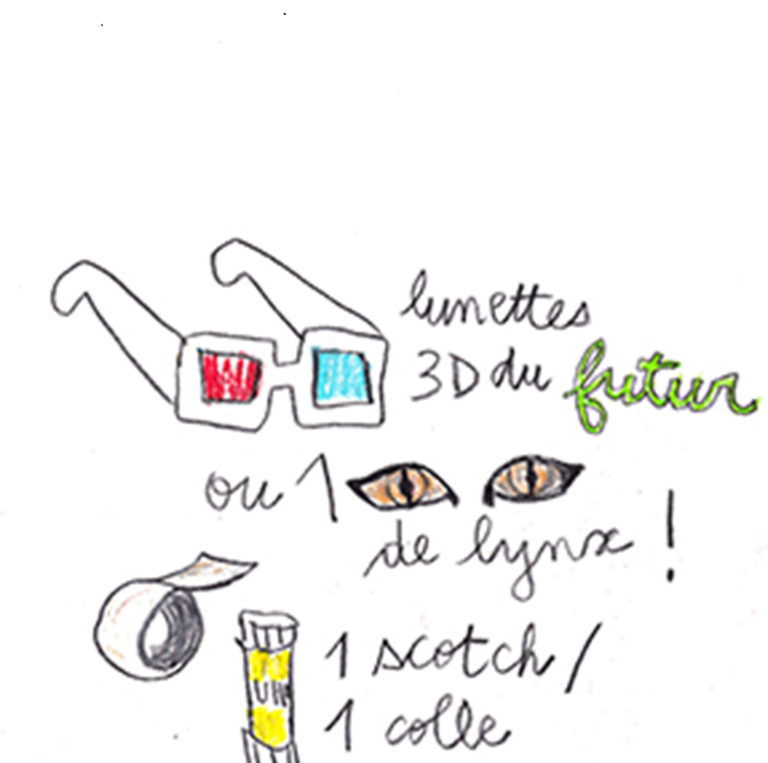 lunettes
3D du futur
ou 1
de lynx !
UHU
1 scotch /
1 colle